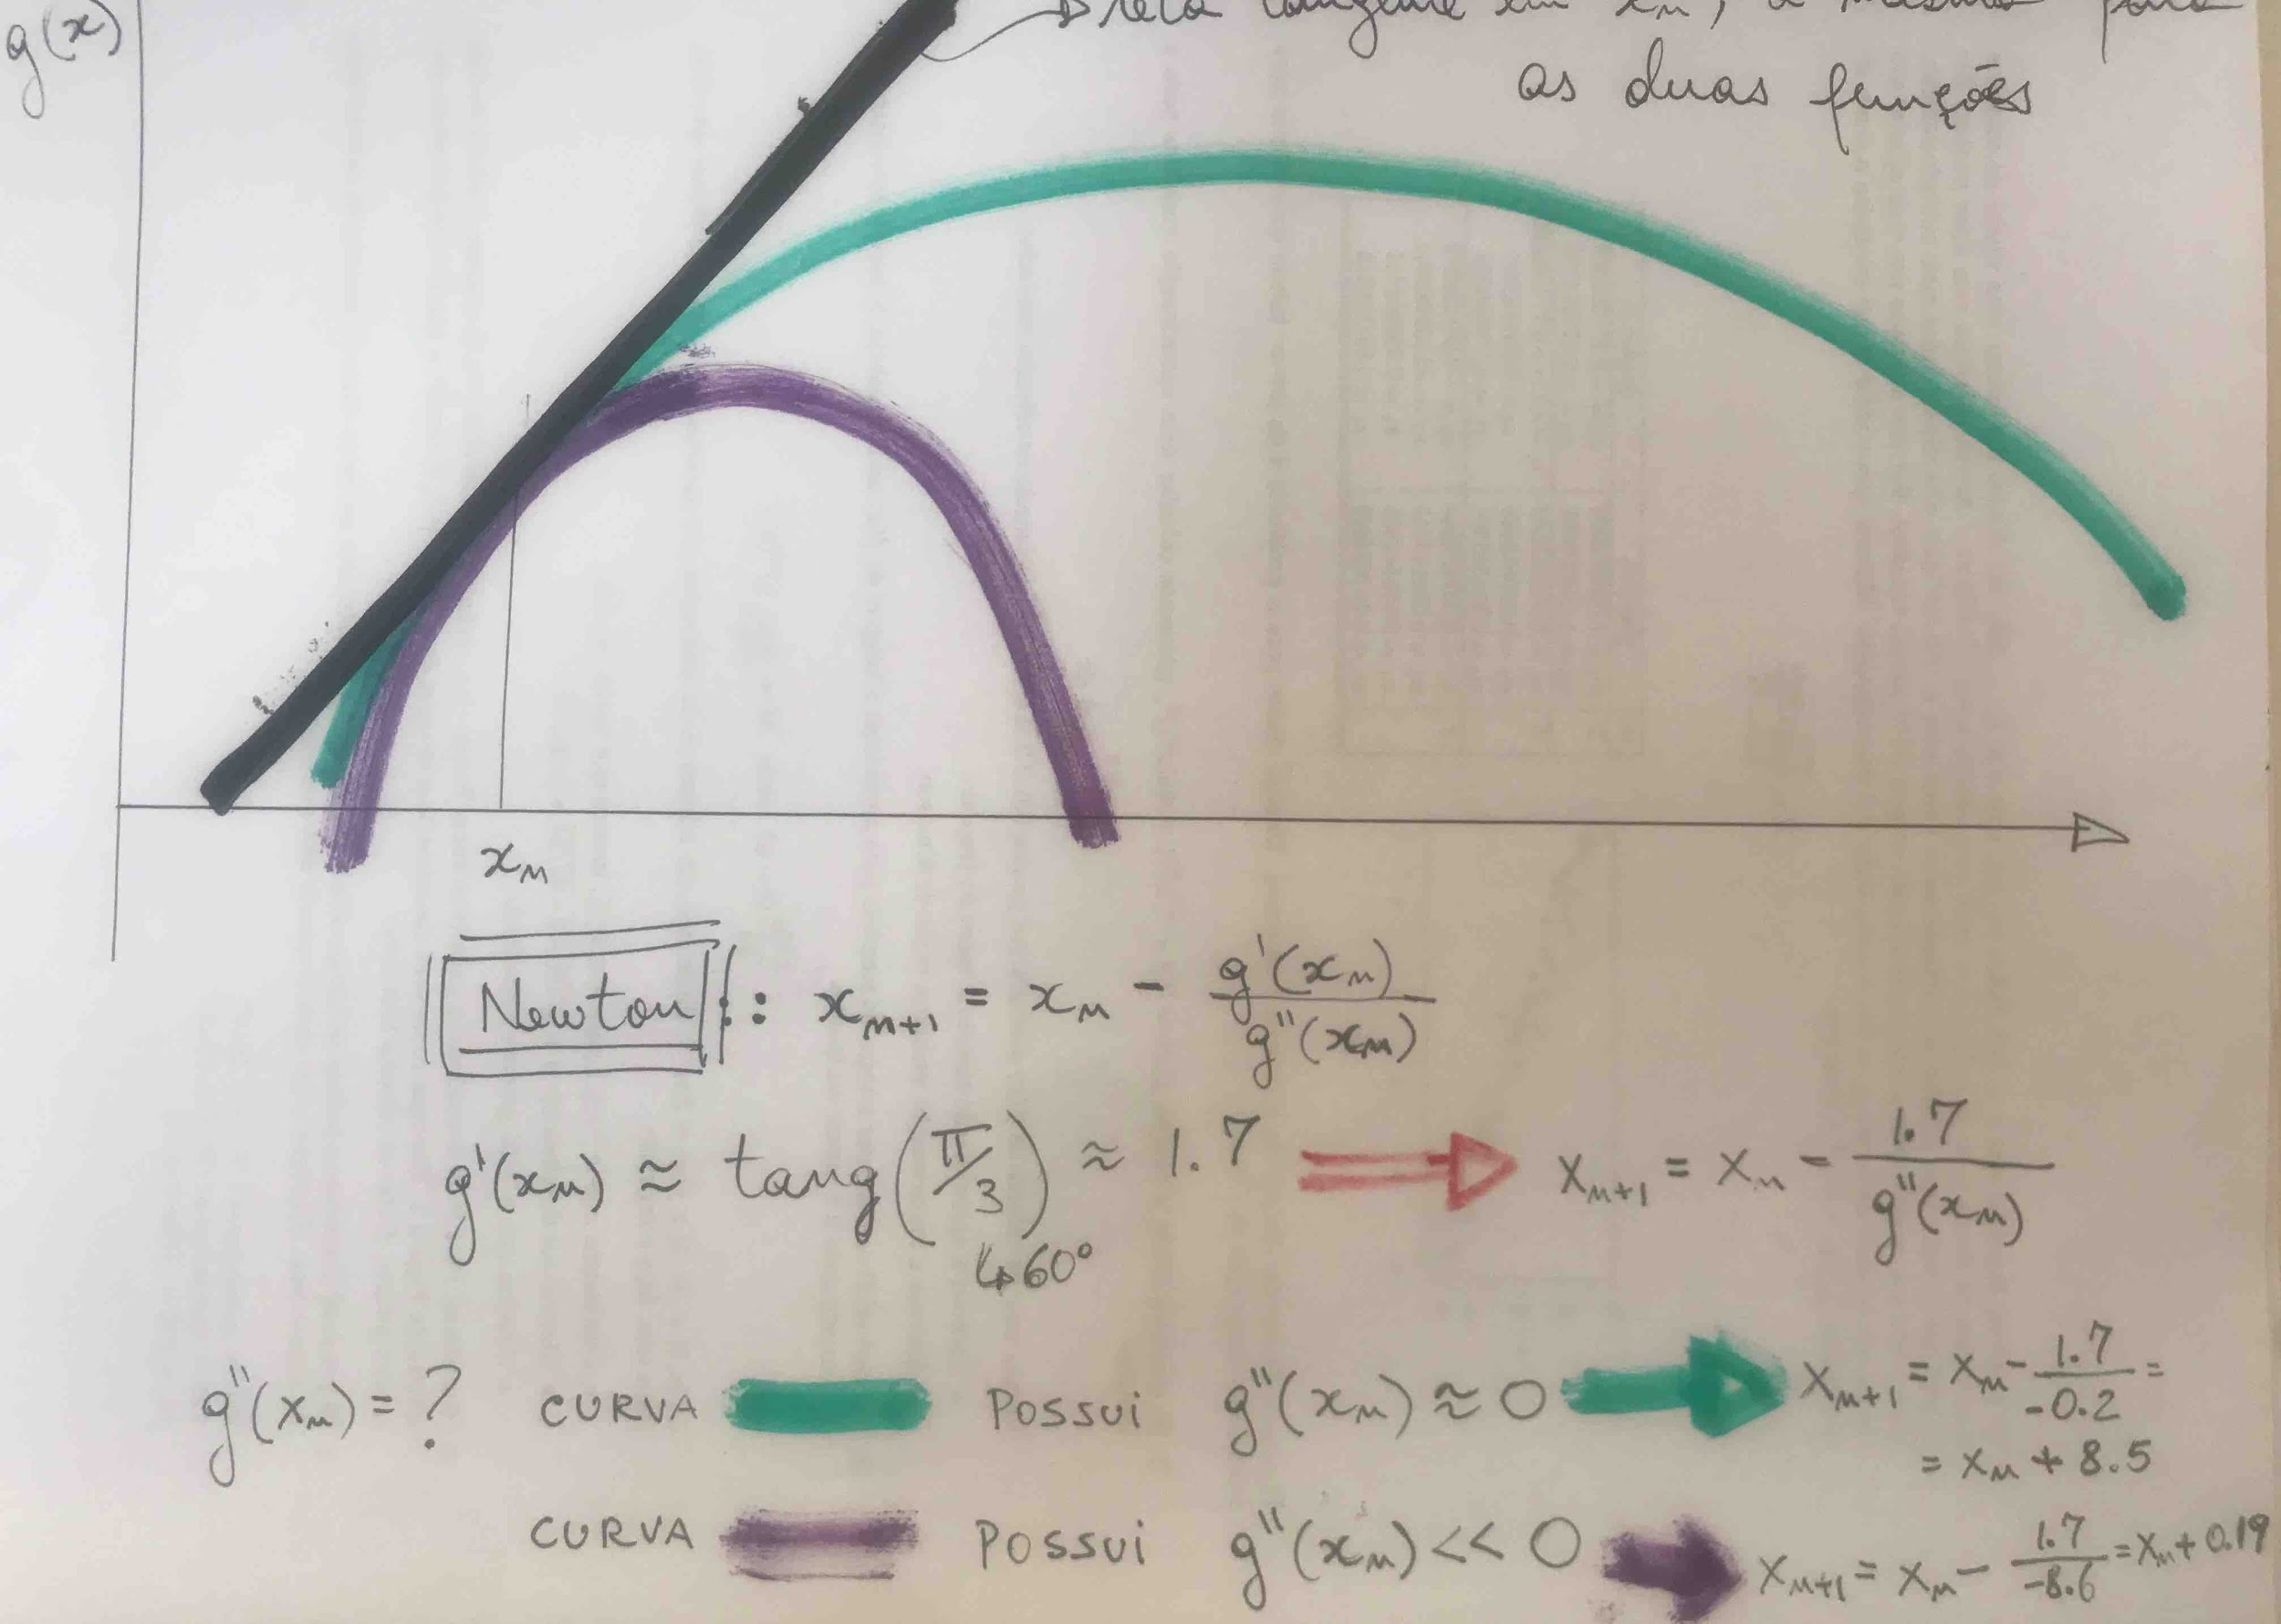 g(x)
reta tangente em xₙ, a mesma para
as duas funções
xₙ
Newton : xₙ₊₁ = xₙ - g'(xₙ) / g''(xₙ)
g'(xₙ) ≈ tang(π/3) ≈ 1.7 ⇒ xₙ₊₁ = xₙ - 1.7 / g''(xₙ)
↳ 60°
g''(xₙ) = ? CURVA POSSUI g''(xₙ) ≈ 0 → xₙ₊₁ = xₙ - 1.7 / -0.2 =
= xₙ + 8.5
CURVA POSSUI g''(xₙ) << 0 → xₙ₊₁ = xₙ - 1.7 / -8.6 = xₙ + 0.19